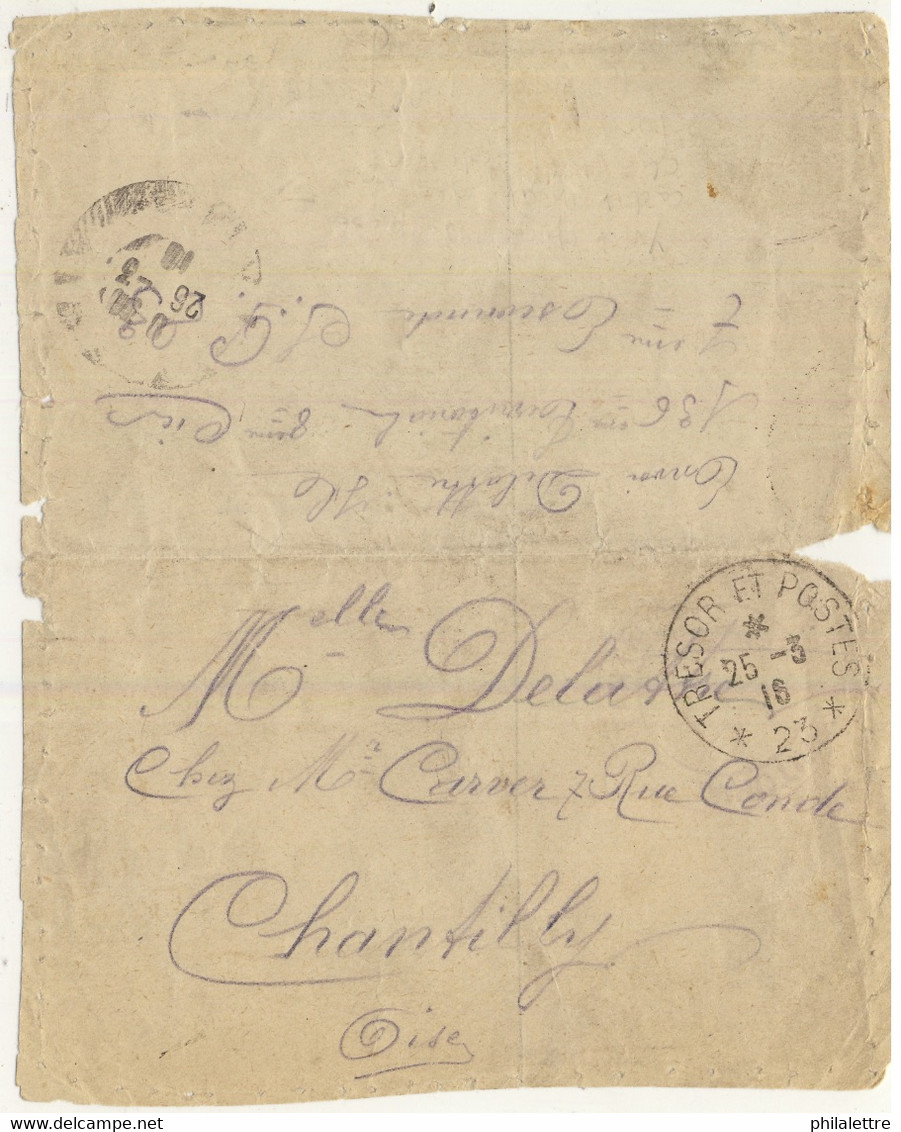 Envoi Delattre Jh
136 eme territorial 8 eme Cie
7 eme Escouade S.P.
23
26
TRESOR ET POSTES
* 25 -5 16
* 23 *
Melle Delattre
Chez Mr Carver 7 Rue Conde
Chantilly
Oise
delcampe.net
philalettre